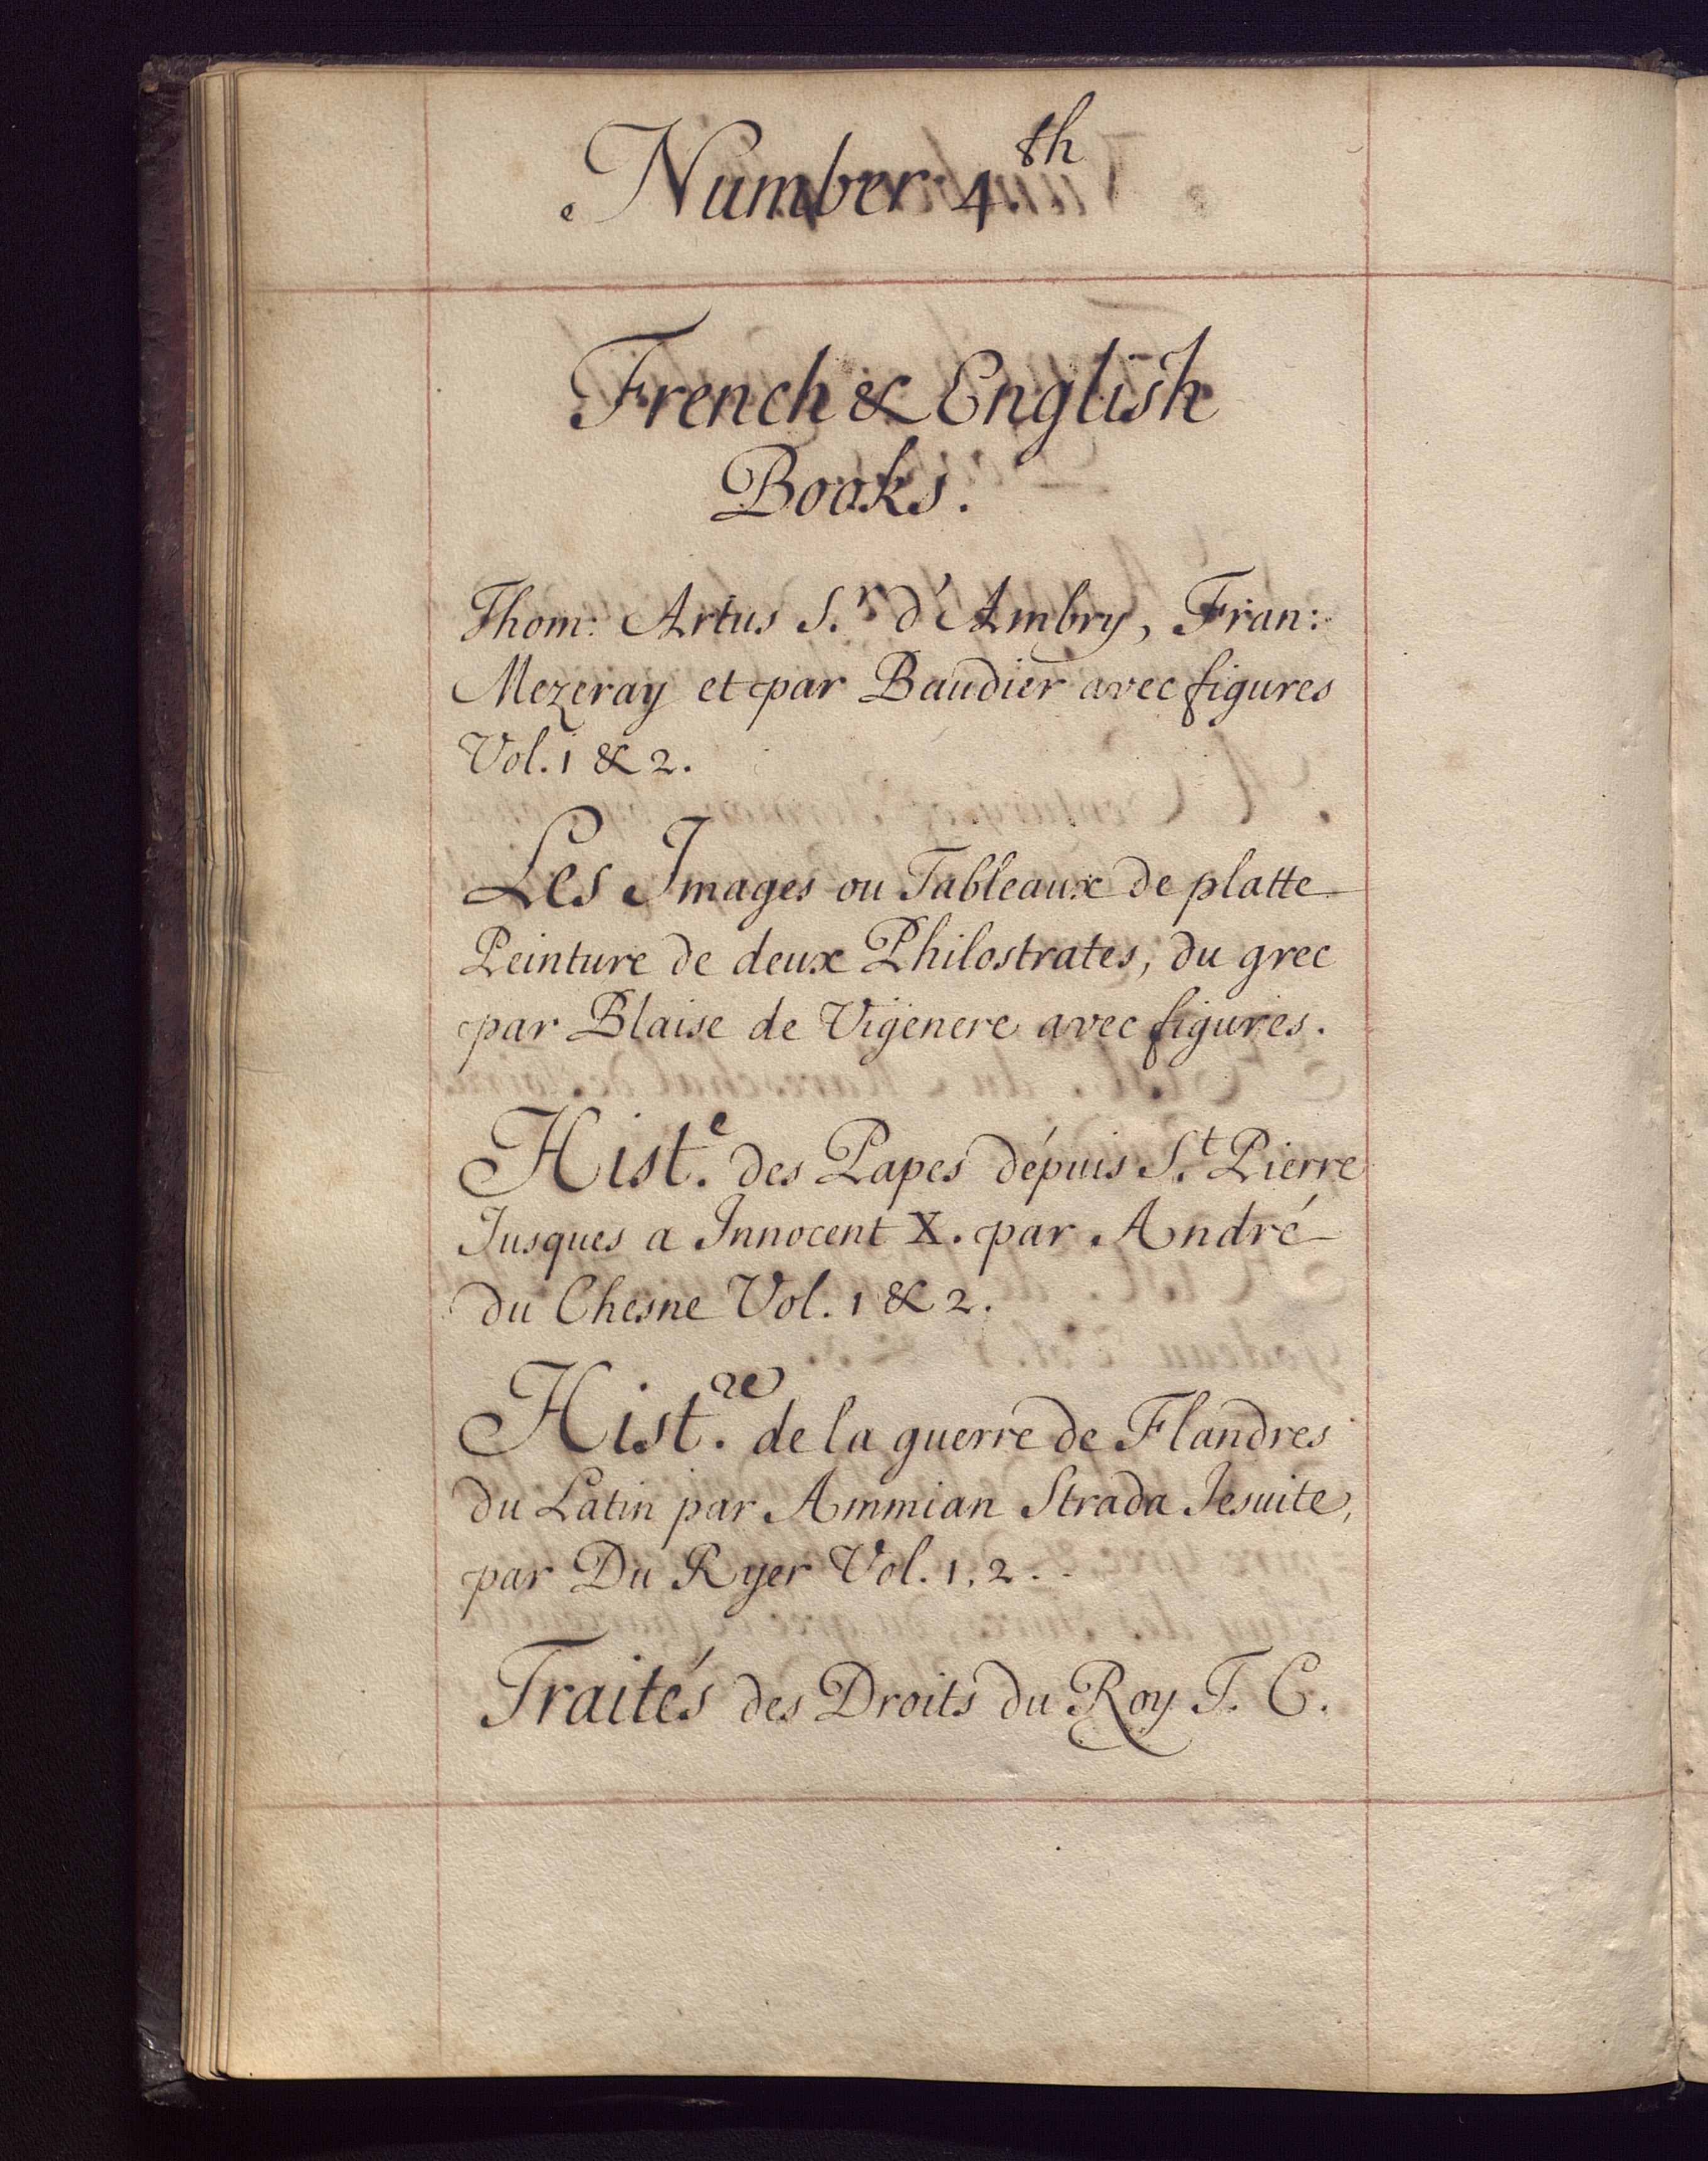 Number 4.th
French & English
Books.
Thom: Artus S.r d'Ambry, Fran:
Mezeray et par Baudier avec figures
Vol. 1 & 2.
Les Images ou Tableaux de platte
Peinture de deux Philostrates, du grec
par Blaise de Vigenere avec figures.
Hist.e des Papes dépuis S.t Pierre
Jusques a Innocent X. par André
du Chesne Vol. 1 & 2.
Hist.re de la guerre de Flandres
du Latin par Ammian Strada Jesuite,
par Du Ryer Vol. 1, 2.
Traités des Droits du Roy T. C.